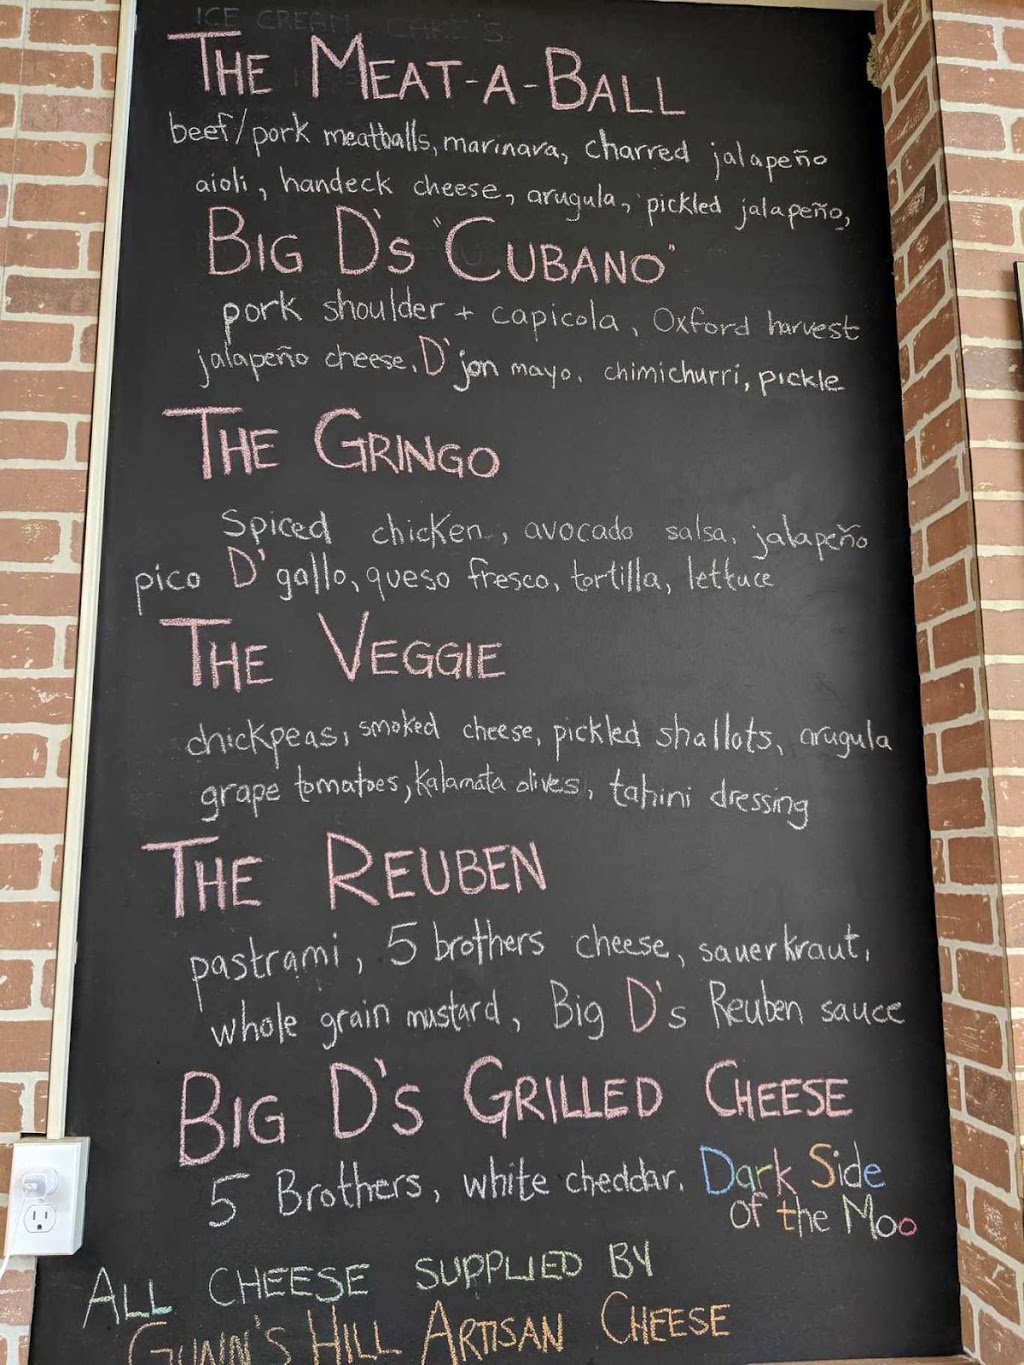 ICE CREAM CAKE'S
THE MEAT-A-BALL
beef/pork meatballs, marinara, charred jalapeño
aioli, handeck cheese, arugula, pickled jalapeño,
BIG D'S "CUBANO"
pork shoulder + capicola, Oxford harvest
jalapeño cheese, D'jon mayo, chimichurri, pickle
THE GRINGO
Spiced chicken, avocado salsa, jalapeño
pico D'gallo, queso fresco, tortilla, lettuce
THE VEGGIE
chickpeas, smoked cheese, pickled shallots, arugula
grape tomatoes, Kalamata olives, tahini dressing
THE REUBEN
pastrami, 5 brothers cheese, sauerkraut,
whole grain mustard, Big D's Reuben sauce
BIG D'S GRILLED CHEESE
5 Brothers, white cheddar, Dark Side
of the Moo
ALL CHEESE SUPPLIED BY
GUNN'S HILL ARTISAN CHEESE